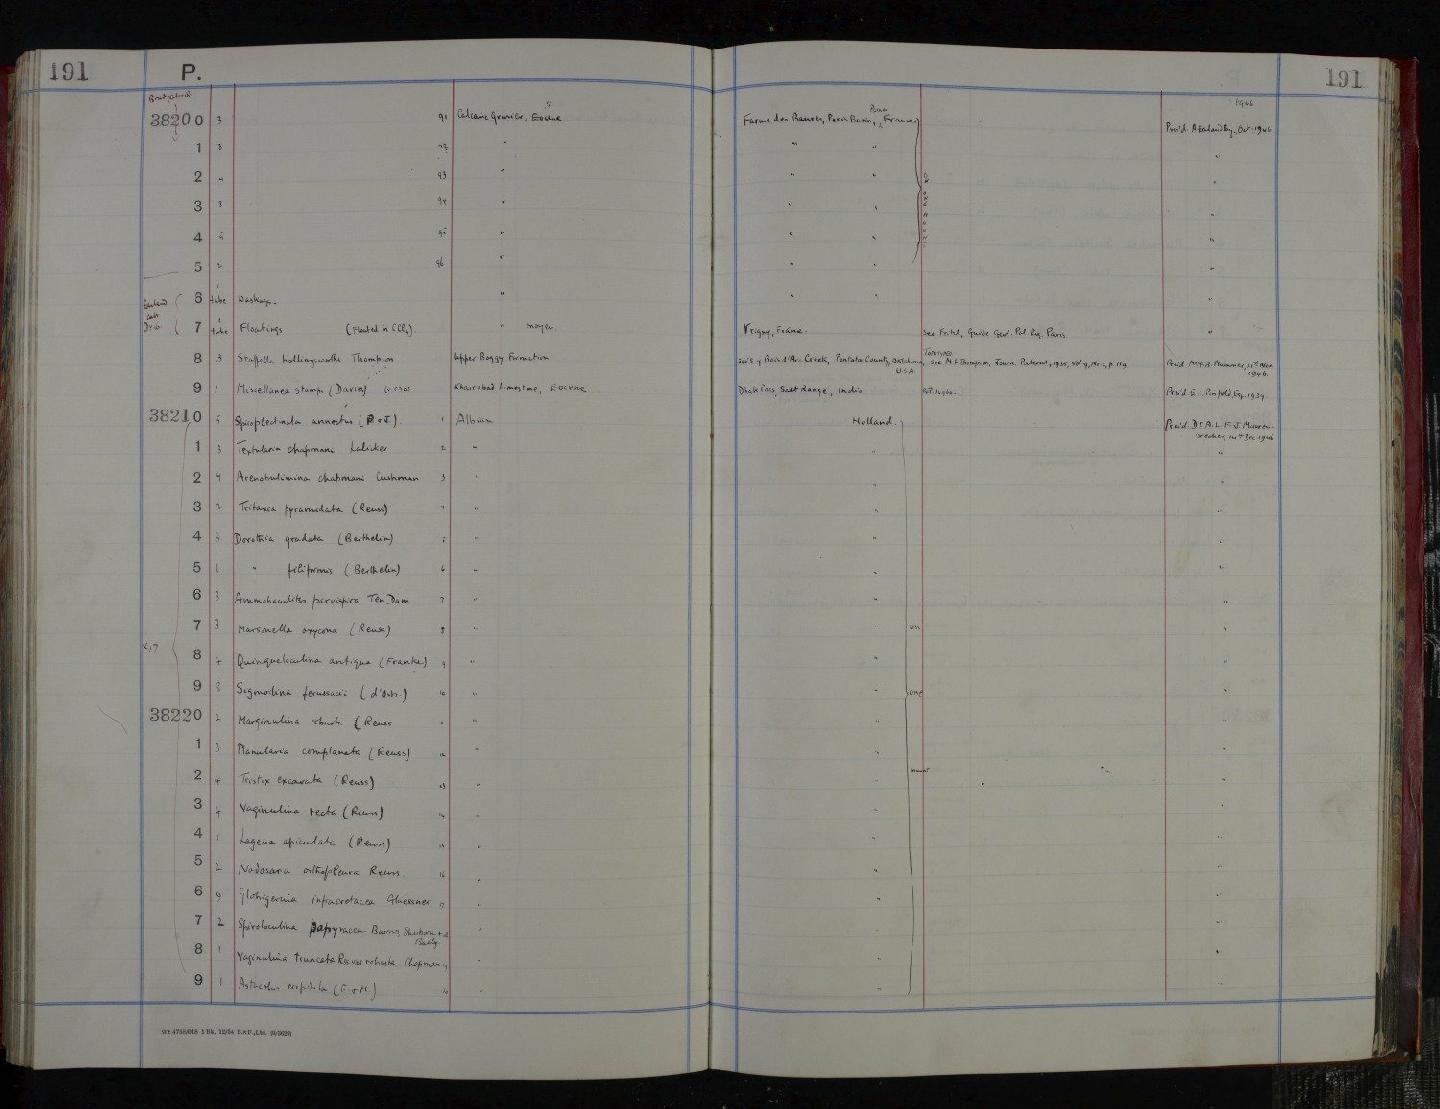 191 P. 191
1946
38200 3 91 Calcaire Grossier, Eocene Paris Basin, France Pres'd. A. Earland Esq. Oct. 1946
1 3 92 " " " "
2 " 93 " " " "
3 3 94 " " " "
4 95 " " " "
5 2 96 " " " "
6 tube Washings. " " " "
7 tube Floatings (Floated in CCl4). " moyen Vrigny, France. See Fritel, Guide Geol. Pal. Reg. Paris "
8 3 Staffella hollingsworthi Thompson Upper Boggy Formation Bois d'Arc Creek, Pontotoc County, Oklahoma, U.S.A. Topotypes see M. L. Thompson, Journ. Paleont, 1935, vol 9, No. 2, p. 119 Pres'd 1946.
9 1 Miscellanea stampi (Davies) Khairabad limestone, Eocene Dhak Pass, Salt Range, India Pres'd E. Pinfold, Esq. 1939.
38210 5 Spiroplectinata annectens (P & J). 1 Albian Holland. Pres'd Dr A. L. F. J. Dec 1946
1 3 Textularia chapmani Lalicker 2 " " "
2 4 Arenobulimina chapmani Cushman 3 " " "
3 2 Tritaxia pyramidata (Reuss) " " "
4 3 Dorothia gradata (Berthelin) 5 " " "
5 1 " filiformis (Berthelin) 6 " " "
6 3 Ammobaculites parvispira Ten Dam 7 " " "
7 3 Marssonella oxycona (Reuss) 8 " on "
8 4 Quinqueloculina antiqua (Franke) 9 " " "
9 3 Sigmoilina ferussacii (d'Orb.) 10 " " one "
38220 2 Marginulina robusta (Reuss " " "
1 3 Planularia complanata (Reuss) 12 " " "
2 4 Tristix excavata (Reuss) 13 " " mount "
3 4 Vaginulina recta (Reuss) 14 " " "
4 1 Lagena apiculata (Reuss) 15 " " "
5 2 Nodosaria orthopleura Reuss. 16 " " "
6 9 Globigerina infracretacea Glaessner 17 " " "
7 2 Spiroloculina papyracea Burrows, Sherborn &
Bailey " " "
8 1 Vaginulina truncata Reuss var robusta Chapman 19 " " "
9 1 Astacolus (F & M.) 20 " " "
Wt 4758/618 1 Bk. 12/34